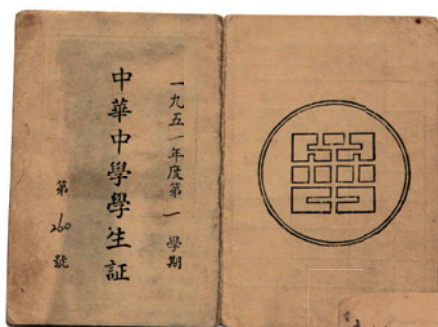 一九五一年度第一學期
中華中學學生証
第260號